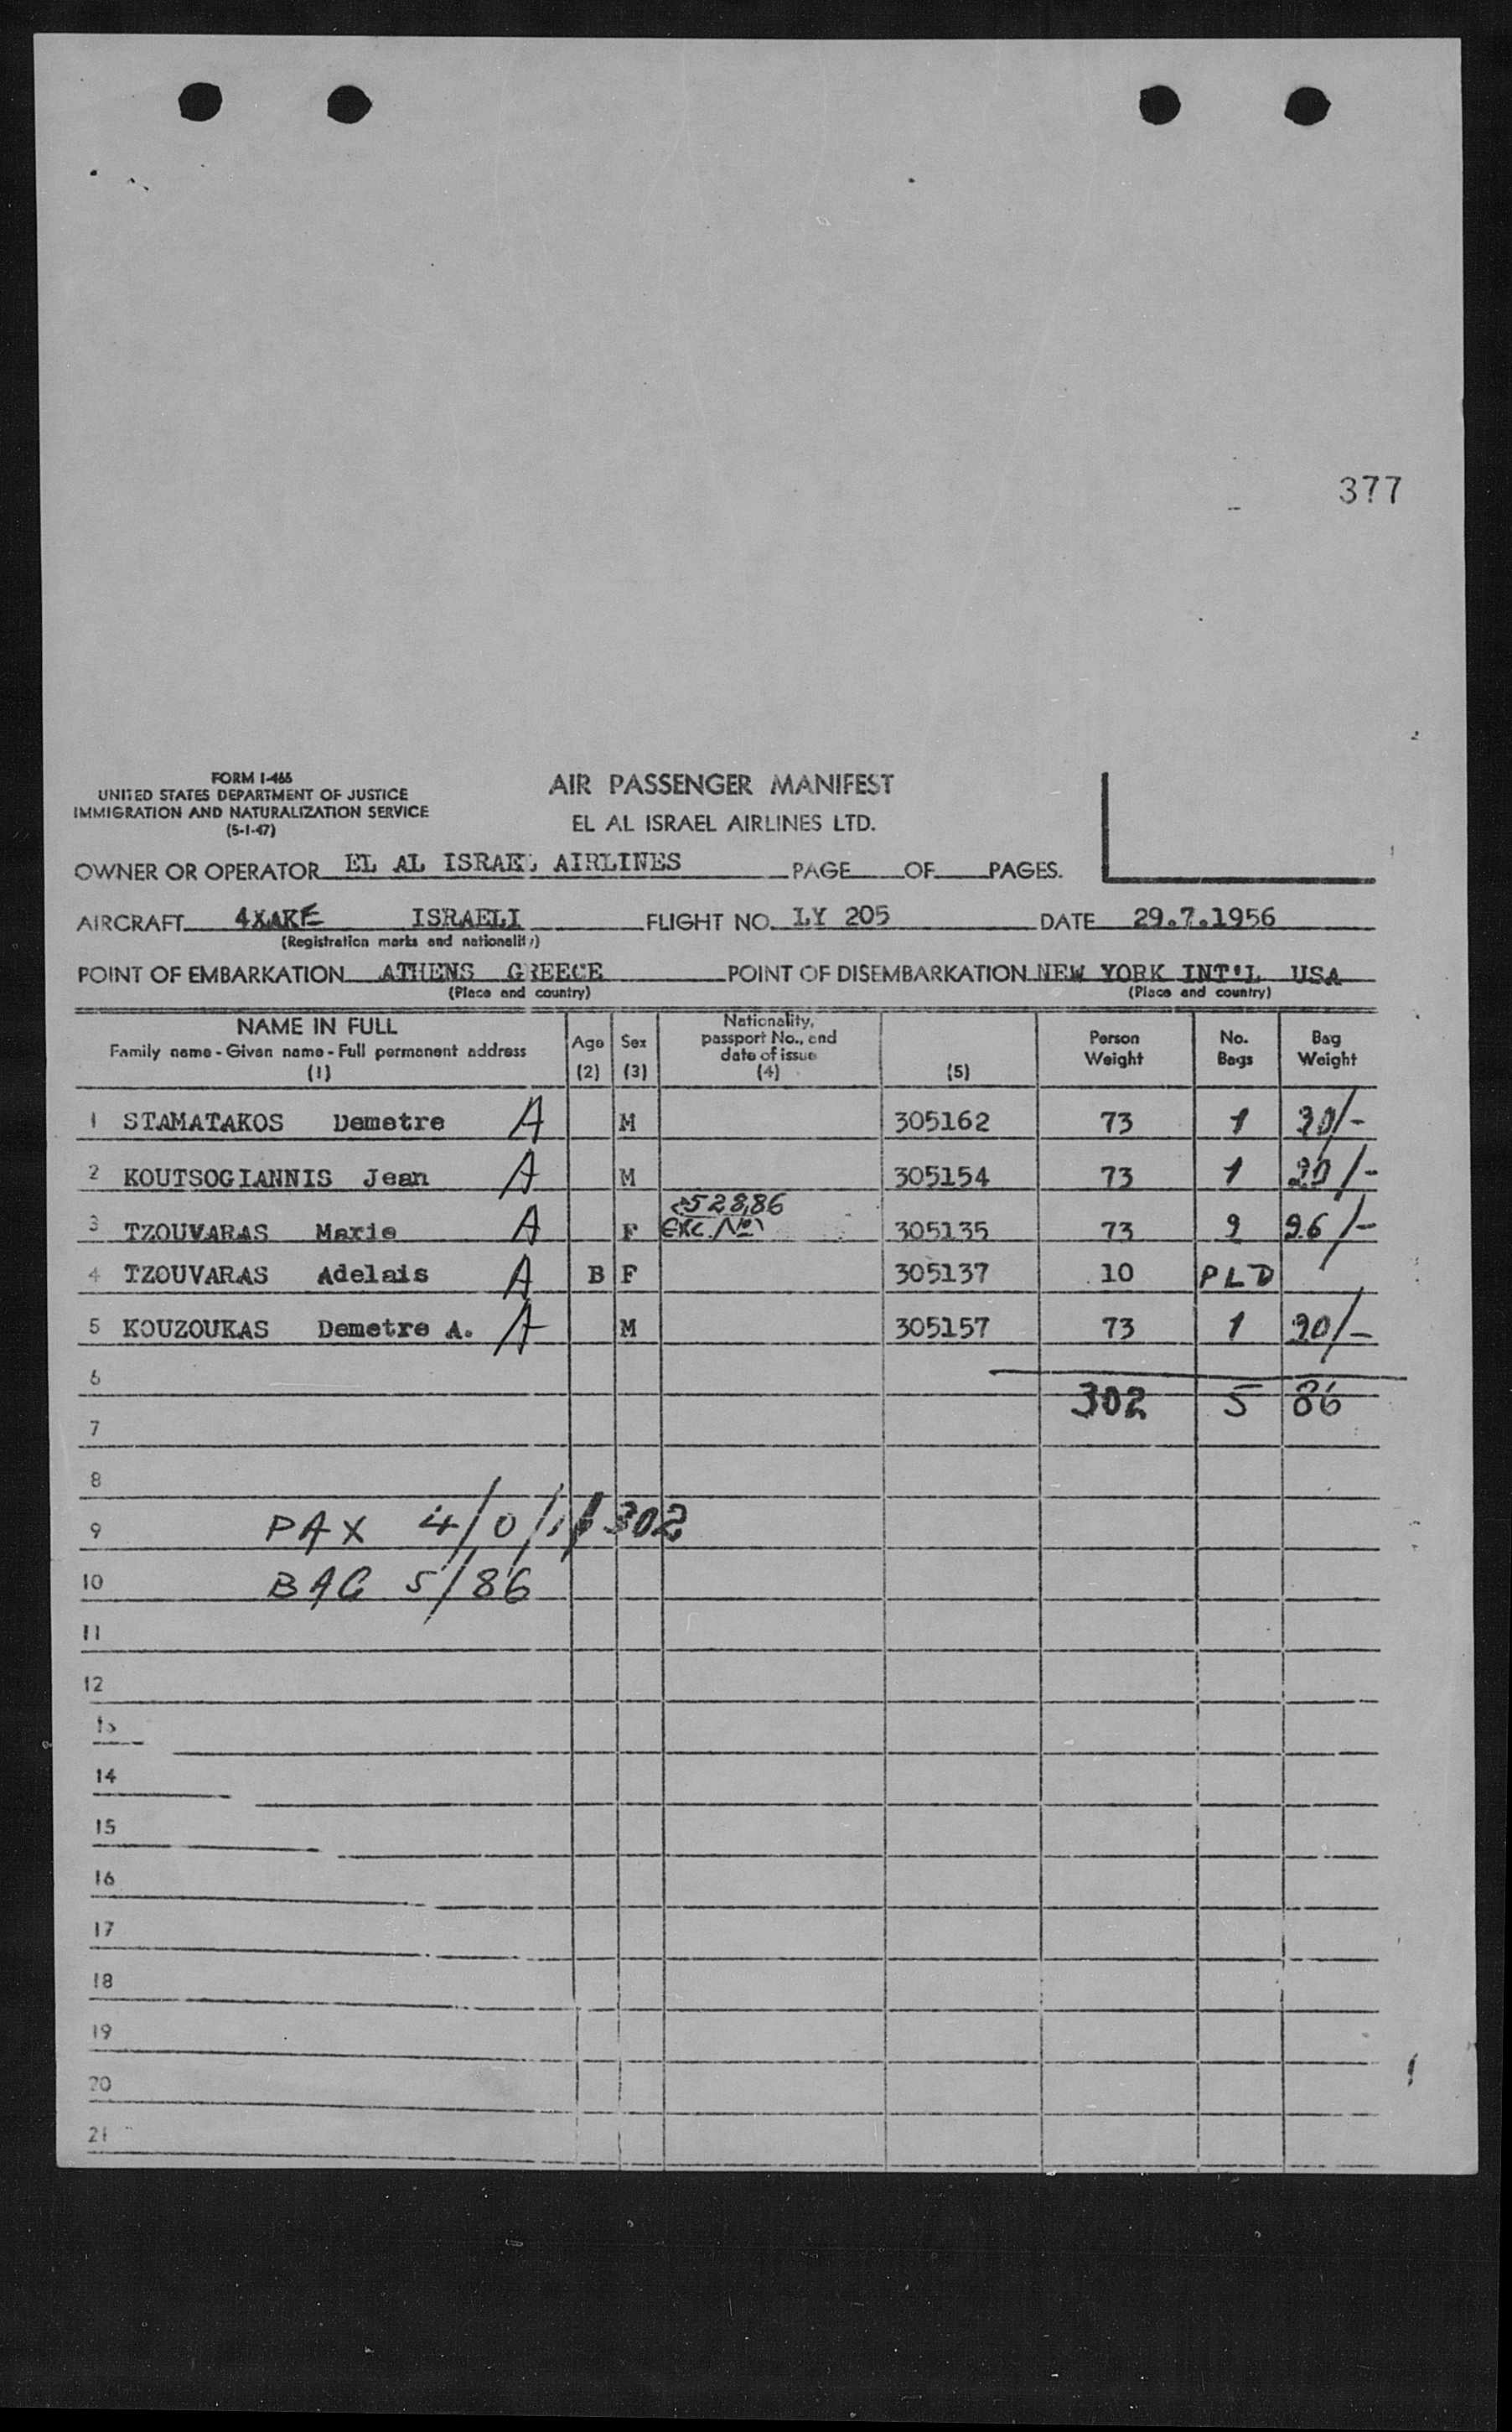 377
FORM I-466
UNITED STATES DEPARTMENT OF JUSTICE
IMMIGRATION AND NATURALIZATION SERVICE
(5-1-47)
AIR PASSENGER MANIFEST
EL AL ISRAEL AIRLINES LTD.
OWNER OR OPERATOR EL AL ISRAEL AIRLINES PAGE OF PAGES.
AIRCRAFT 4XAKE ISRAELI FLIGHT NO. LY 205 DATE 29.7.1956
(Registration marks and nationality)
POINT OF EMBARKATION ATHENS GREECE POINT OF DISEMBARKATION NEW YORK INT'L USA
(Place and country) (Place and country)
NAME IN FULL Family name - Given name - Full permanent address (1) Age (2) Sex (3) Nationality, passport No., and date of issue (4) (5) Person Weight No. Bags Bag Weight
1 STAMATAKOS Demetre A M 305162 73 1 20/-
2 KOUTSOGIANNIS Jean A M 305154 73 1 20/-
3 TZOUVARAS Marie A F EXC. No 305135 73 2 26/-
4 TZOUVARAS Adelais A B F 305137 10 PLD
5 KOUZOUKAS Demetre A. A M 305157 73 1 20/-
6
302 5 86
7
8
9 PAX 4/0/1/302
10 BAG 5/86
11
12
13
14
15
16
17
18
19
20
21